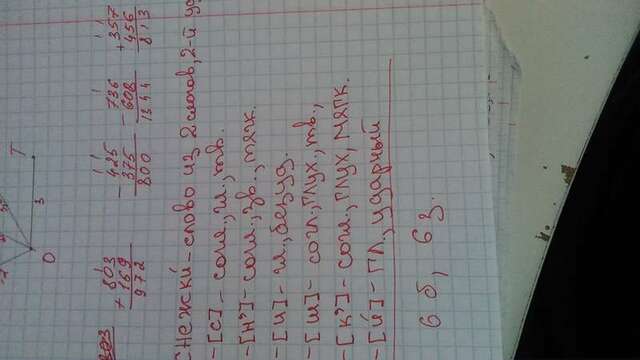 O 3 T
803 + 169 972
- 425 375 800
- 736 608 1344
+ 357 456 813
снежки́ - слово из 2 слогов, 2-й уд
- [с] - согл., гл., тв.
- [н'] - согл., зв., мягк.
- [и] - гл., безуд.
- [ш] - согл., глух., тв.,
- [к'] - согл., глух, мягк.
- [и́] - гл., ударный
6 б, 6 з.